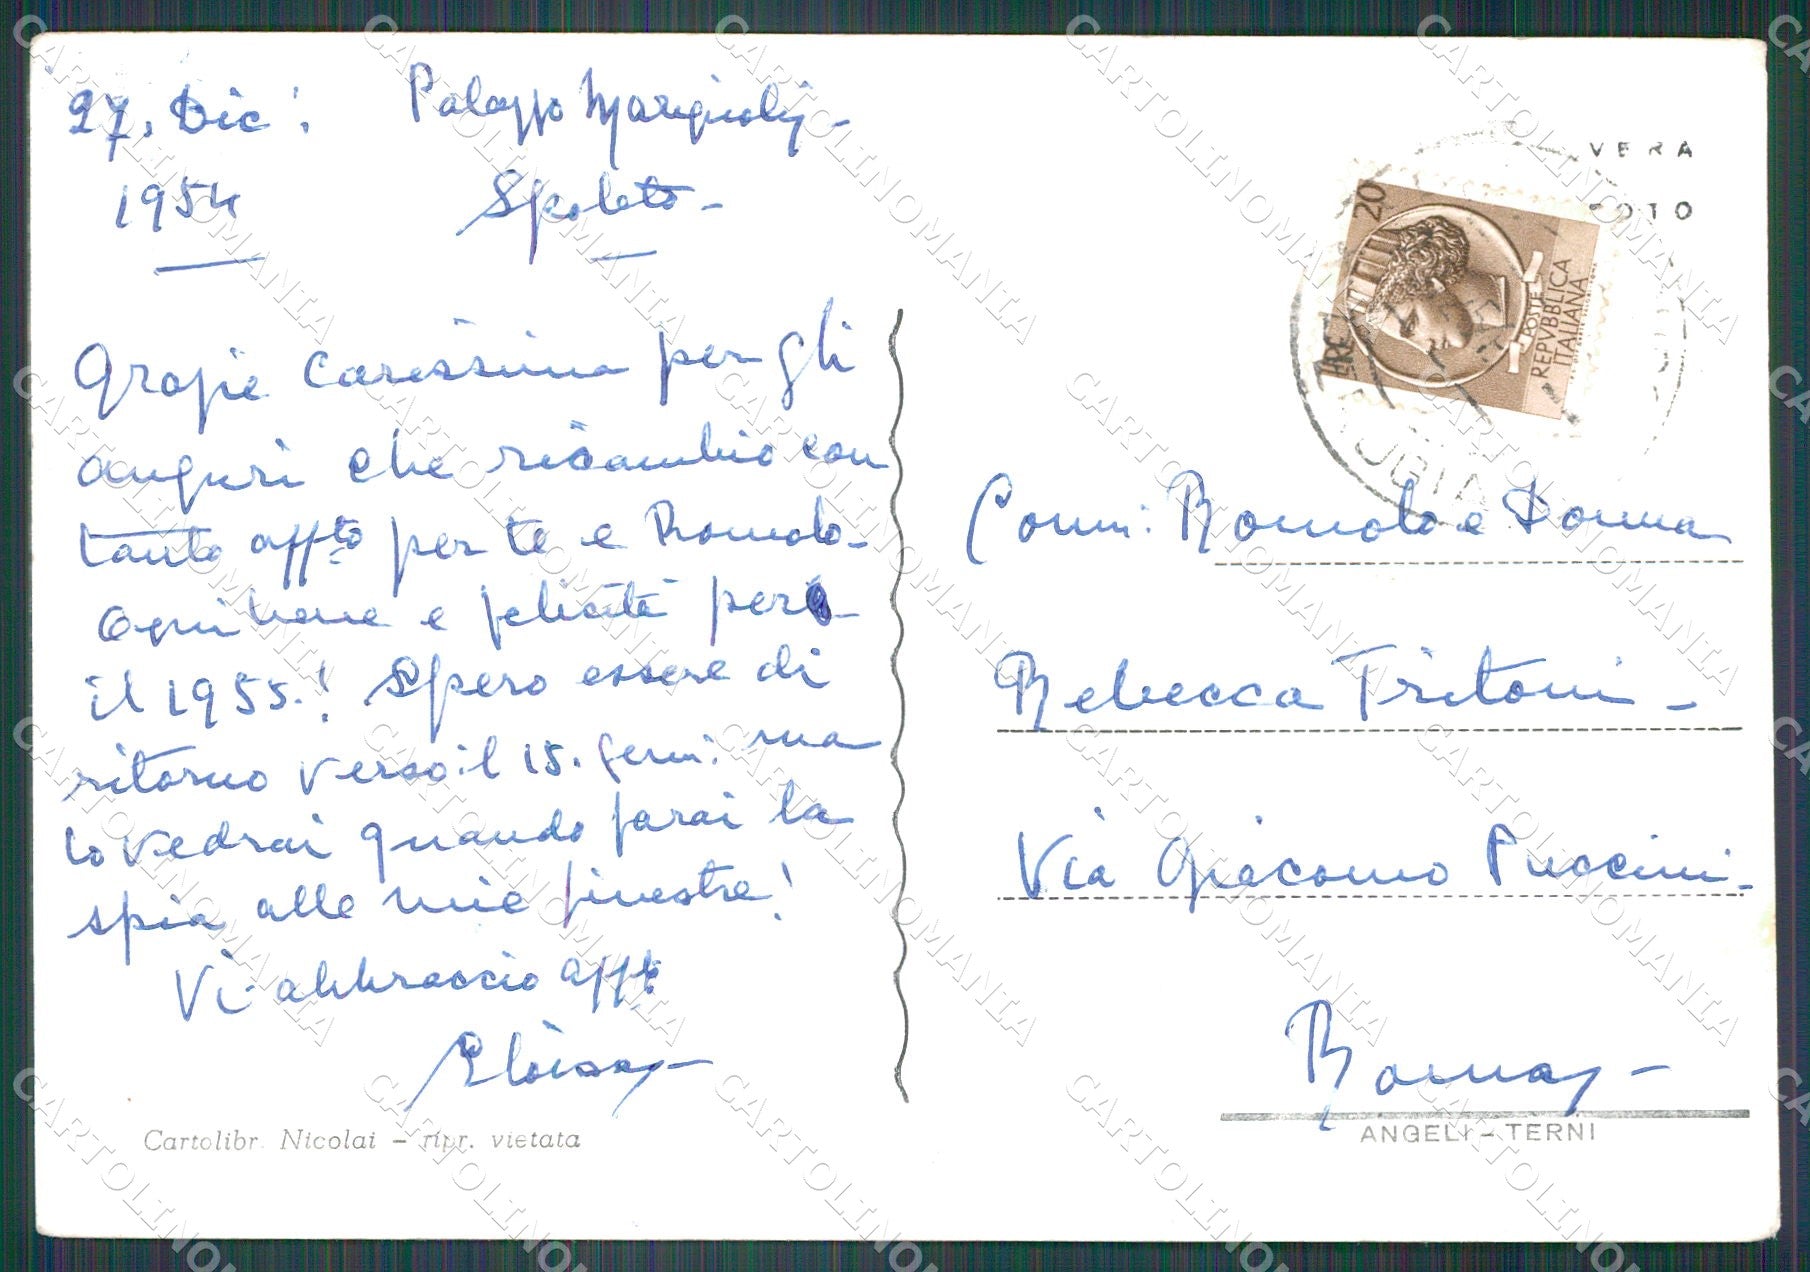 27. Dic: Palazzo Marignoli -
1954 Spoleto -
Grazie carissima per gli
auguri che ricambio con
tanto affto per te e Romolo -
Ogni bene e felicità per
il 1955.! Spero essere di
ritorno verso il 15. genn: ma
lo vedrai quando farai la
spia alle mie finestre!
Vi abbraccio afft
Eloisa -
Cartolibr. Nicolai - ripr. vietata
VERA
FOTO
LIRE 20
POSTE
REPVBBLICA
ITALIANA
Comm: Romolo e Donna
Rebecca Tritoni -
Via Giacomo Puccini -
Roma -
ANGELI - TERNI
CARTOLINOMANIA